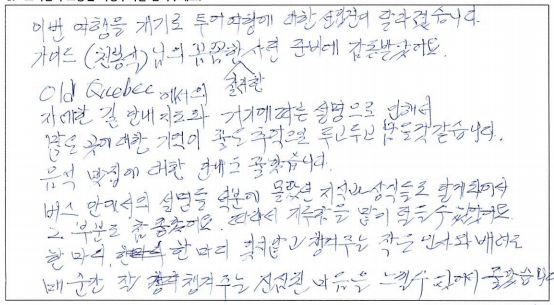 이번 여행을 계기로 투어여행에 대한 선입견이 달라졌습니다.
가이드 (천광석) 님의 꼼꼼한 사전 준비에 감동받았어요.
철저한
Old Quebec 에서의
자세한 길 안내 지도와 거기에 따른 설명으로 인해서
많은 곳에 대한 기억이 좋은 추억으로 두고두고 남을것 같습니다.
음식 맛집에 대한 안내도 좋았습니다.
버스 안에서의 설명들 덕분에 몰랐던 지식과 상식들도 알게되어서
그 부분도 참 좋았어요. 따라서 지루함을 많이 덜 수 있었어요
한마디, 한마디 챙겨주는 작은 인사와 배려도
매순간 잘 챙겨주는 진심된 마음을 느낄수 있어서 좋았습니다